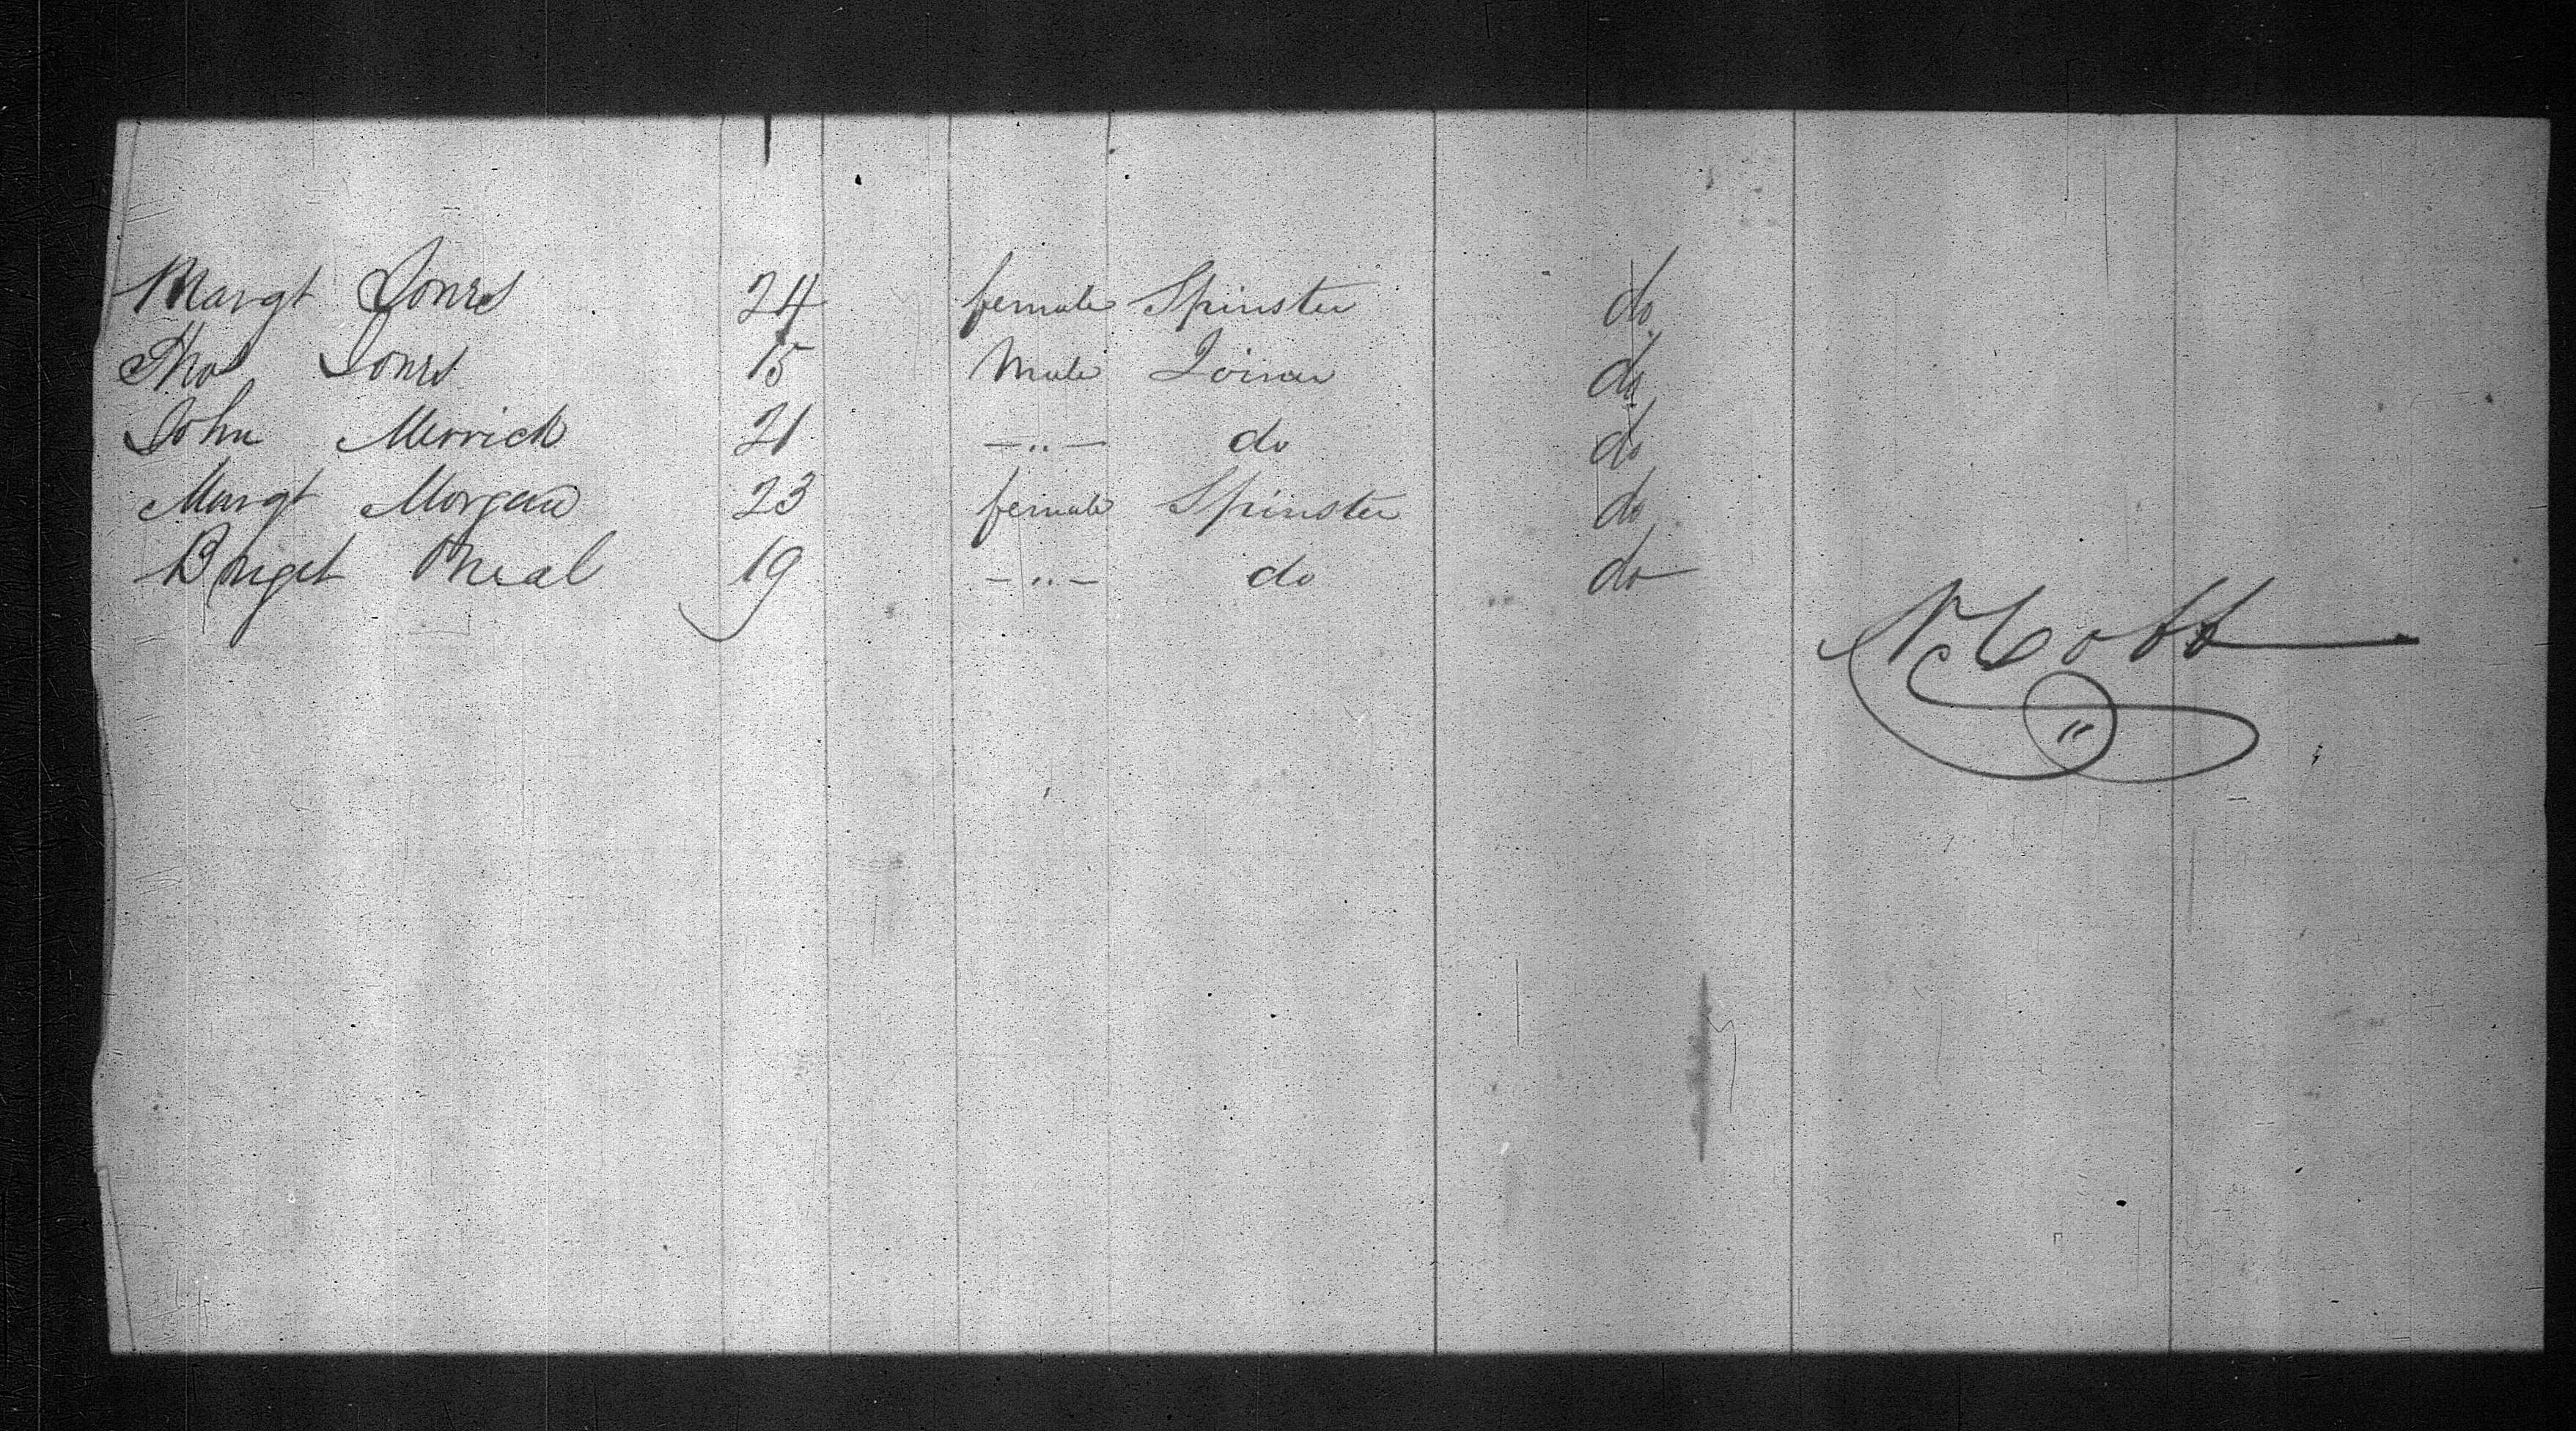 Margt Jones 24 female Spinster do
Thos Jones 15 Male Joiner do
John Merrick 21 -"- do do
Margt Morgan 23 female Spinster do
Briget Oneal 19 -"- do do
N Cobb